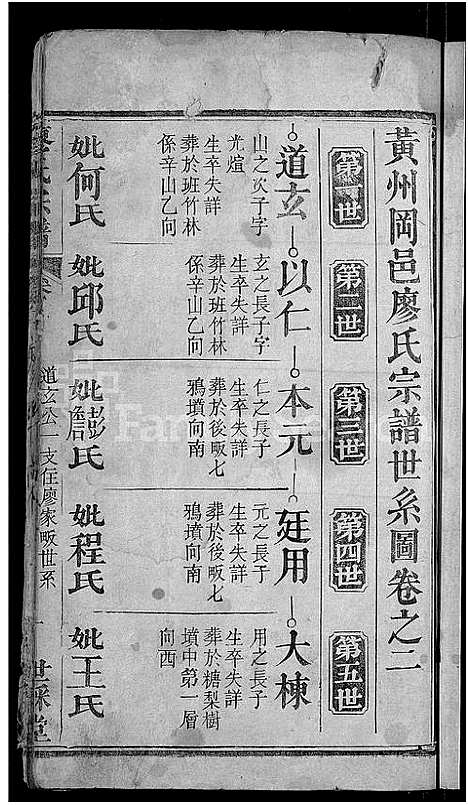 黃州岡邑廖氏宗譜世系圖卷之二
第一世
第二世
第三世
第四世
第五世
道玄
以仁
本元
廷用
大棟
山之次子字
光煊
生卒失詳
葬於班竹林
係辛山乙向
玄之長子字
生卒失詳
葬於班竹林
係辛山乙向
仁之長子
生卒失詳
葬於後畈七
鴉墳向南
元之長子
生卒失詳
葬於後畈七
鴉墳向南
用之長子
生卒失詳
葬於糖梨樹
墳中第一層
向西
妣何氏
妣邱氏
妣彭氏
詹
妣程氏
妣王氏
氏宗譜
道玄公一支住廖家畈世系
世綵堂